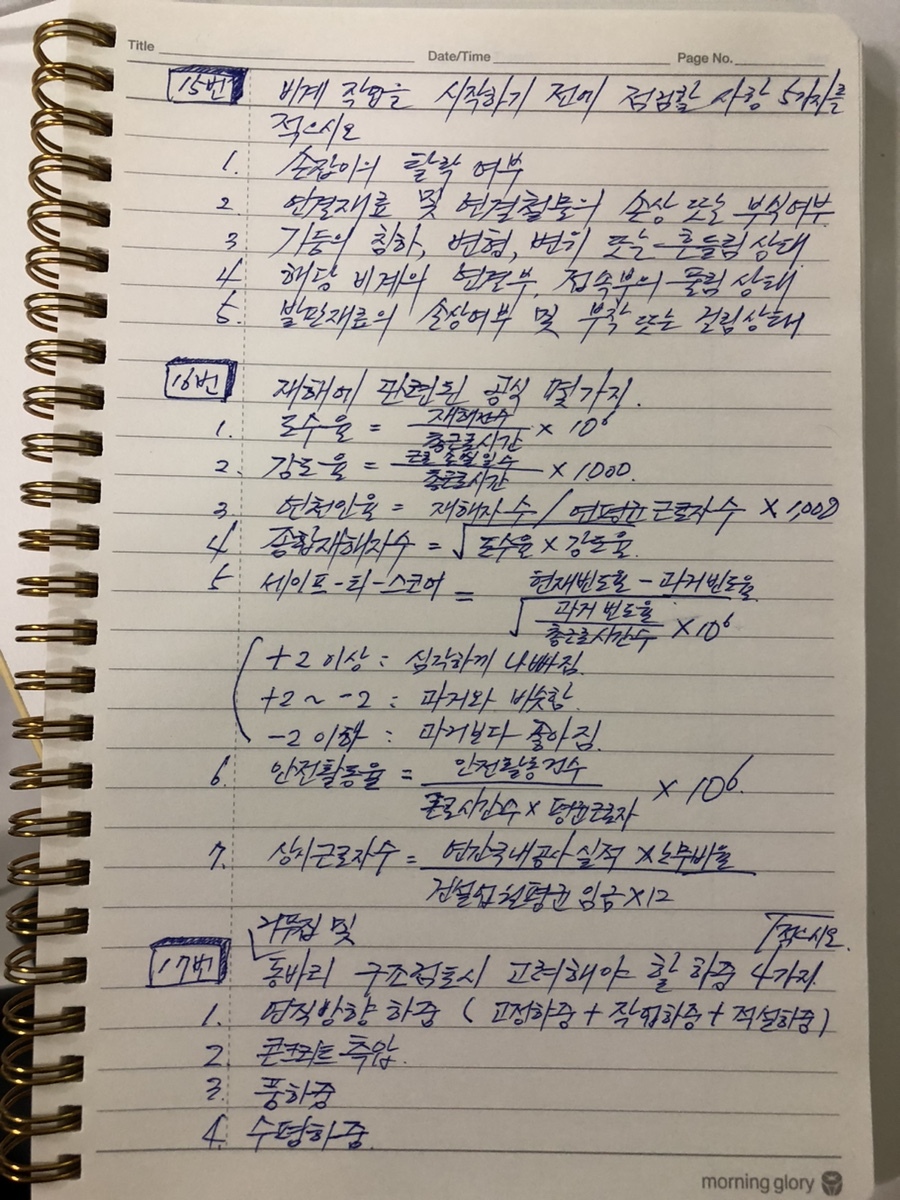 Title Date/Time Page No.
15번 비계 작업을 시작하기 전에 점검할 사항 5가지를
적으시오
1. 손잡이의 탈락 여부
2. 연결재료 및 연결철물의 손상 또는 부식여부
3 기둥의 침하, 변형, 변위 또는 흔들림 상태
4 해당 비계의 연결부, 접속부의 풀림 상태
5. 발판재료의 손상여부 및 부착 또는 걸림상태
16번 재해에 관련된 공식 몇가지.
1. 도수율 = 재해건수 / 총근로시간 × 10⁶
2. 강도율 = 근로손실일수 / 총근로시간 × 1000.
3 연천인율 = 재해자수 / 연평균근로자수 × 1,000
4 종합재해지수 = √도수율 × 강도율.
5 세이프-티-스코어 = 현재빈도율 - 과거빈도율 / √과거빈도율 / 총근로시간수 × 10⁶
+2 이상 : 심각하게 나빠짐.
+2 ~ -2 : 과거와 비슷함.
-2 이하 : 과거보다 좋아짐.
6. 안전활동율 = 안전활동건수 / 근로시간수 × 평균근로자 × 10⁶.
7. 상시근로자수 = 연간국내공사 실적 × 노무비율 / 건설업 월평균 임금 × 12
거푸집 및 적으시오.
17번 동바리 구조검토시 고려해야 할 하중 4가지
1. 연직방향 하중 ( 고정하중 + 작업하중 + 적설하중 )
2. 콘크리트 측압.
3. 풍하중
4. 수평하중.
morning glory